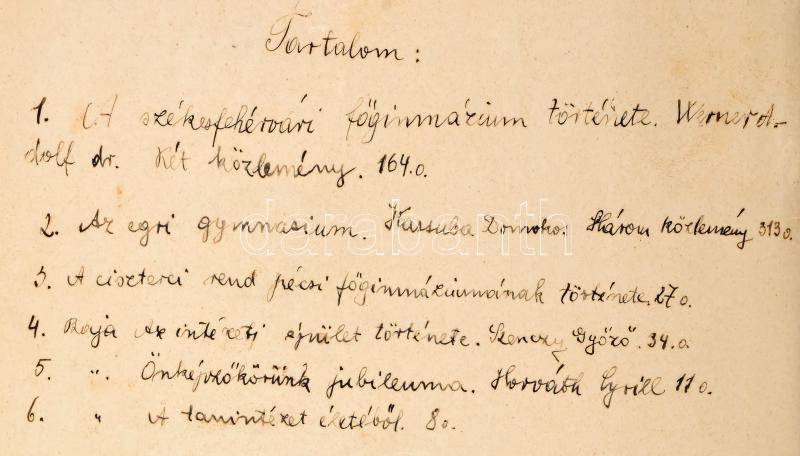 Tartalom:
1. A székesfehérvári főginmázium története. Werner A-
dolf dr. Két közlemény. 164.o.
2. Az egri gymnasium. Kassuba Domokos Három közlemény 313 o.
3. A ciszterci rend pécsi főginmáziumának története. 27 o.
4. Baja Az intézeti épület története. Szenczy Győző. 34.o.
5. " Önképzőkörünk jubileuma. Horváth Cyrill 11 o.
6. " A tanintézet életéből. 8 o.
darabanth